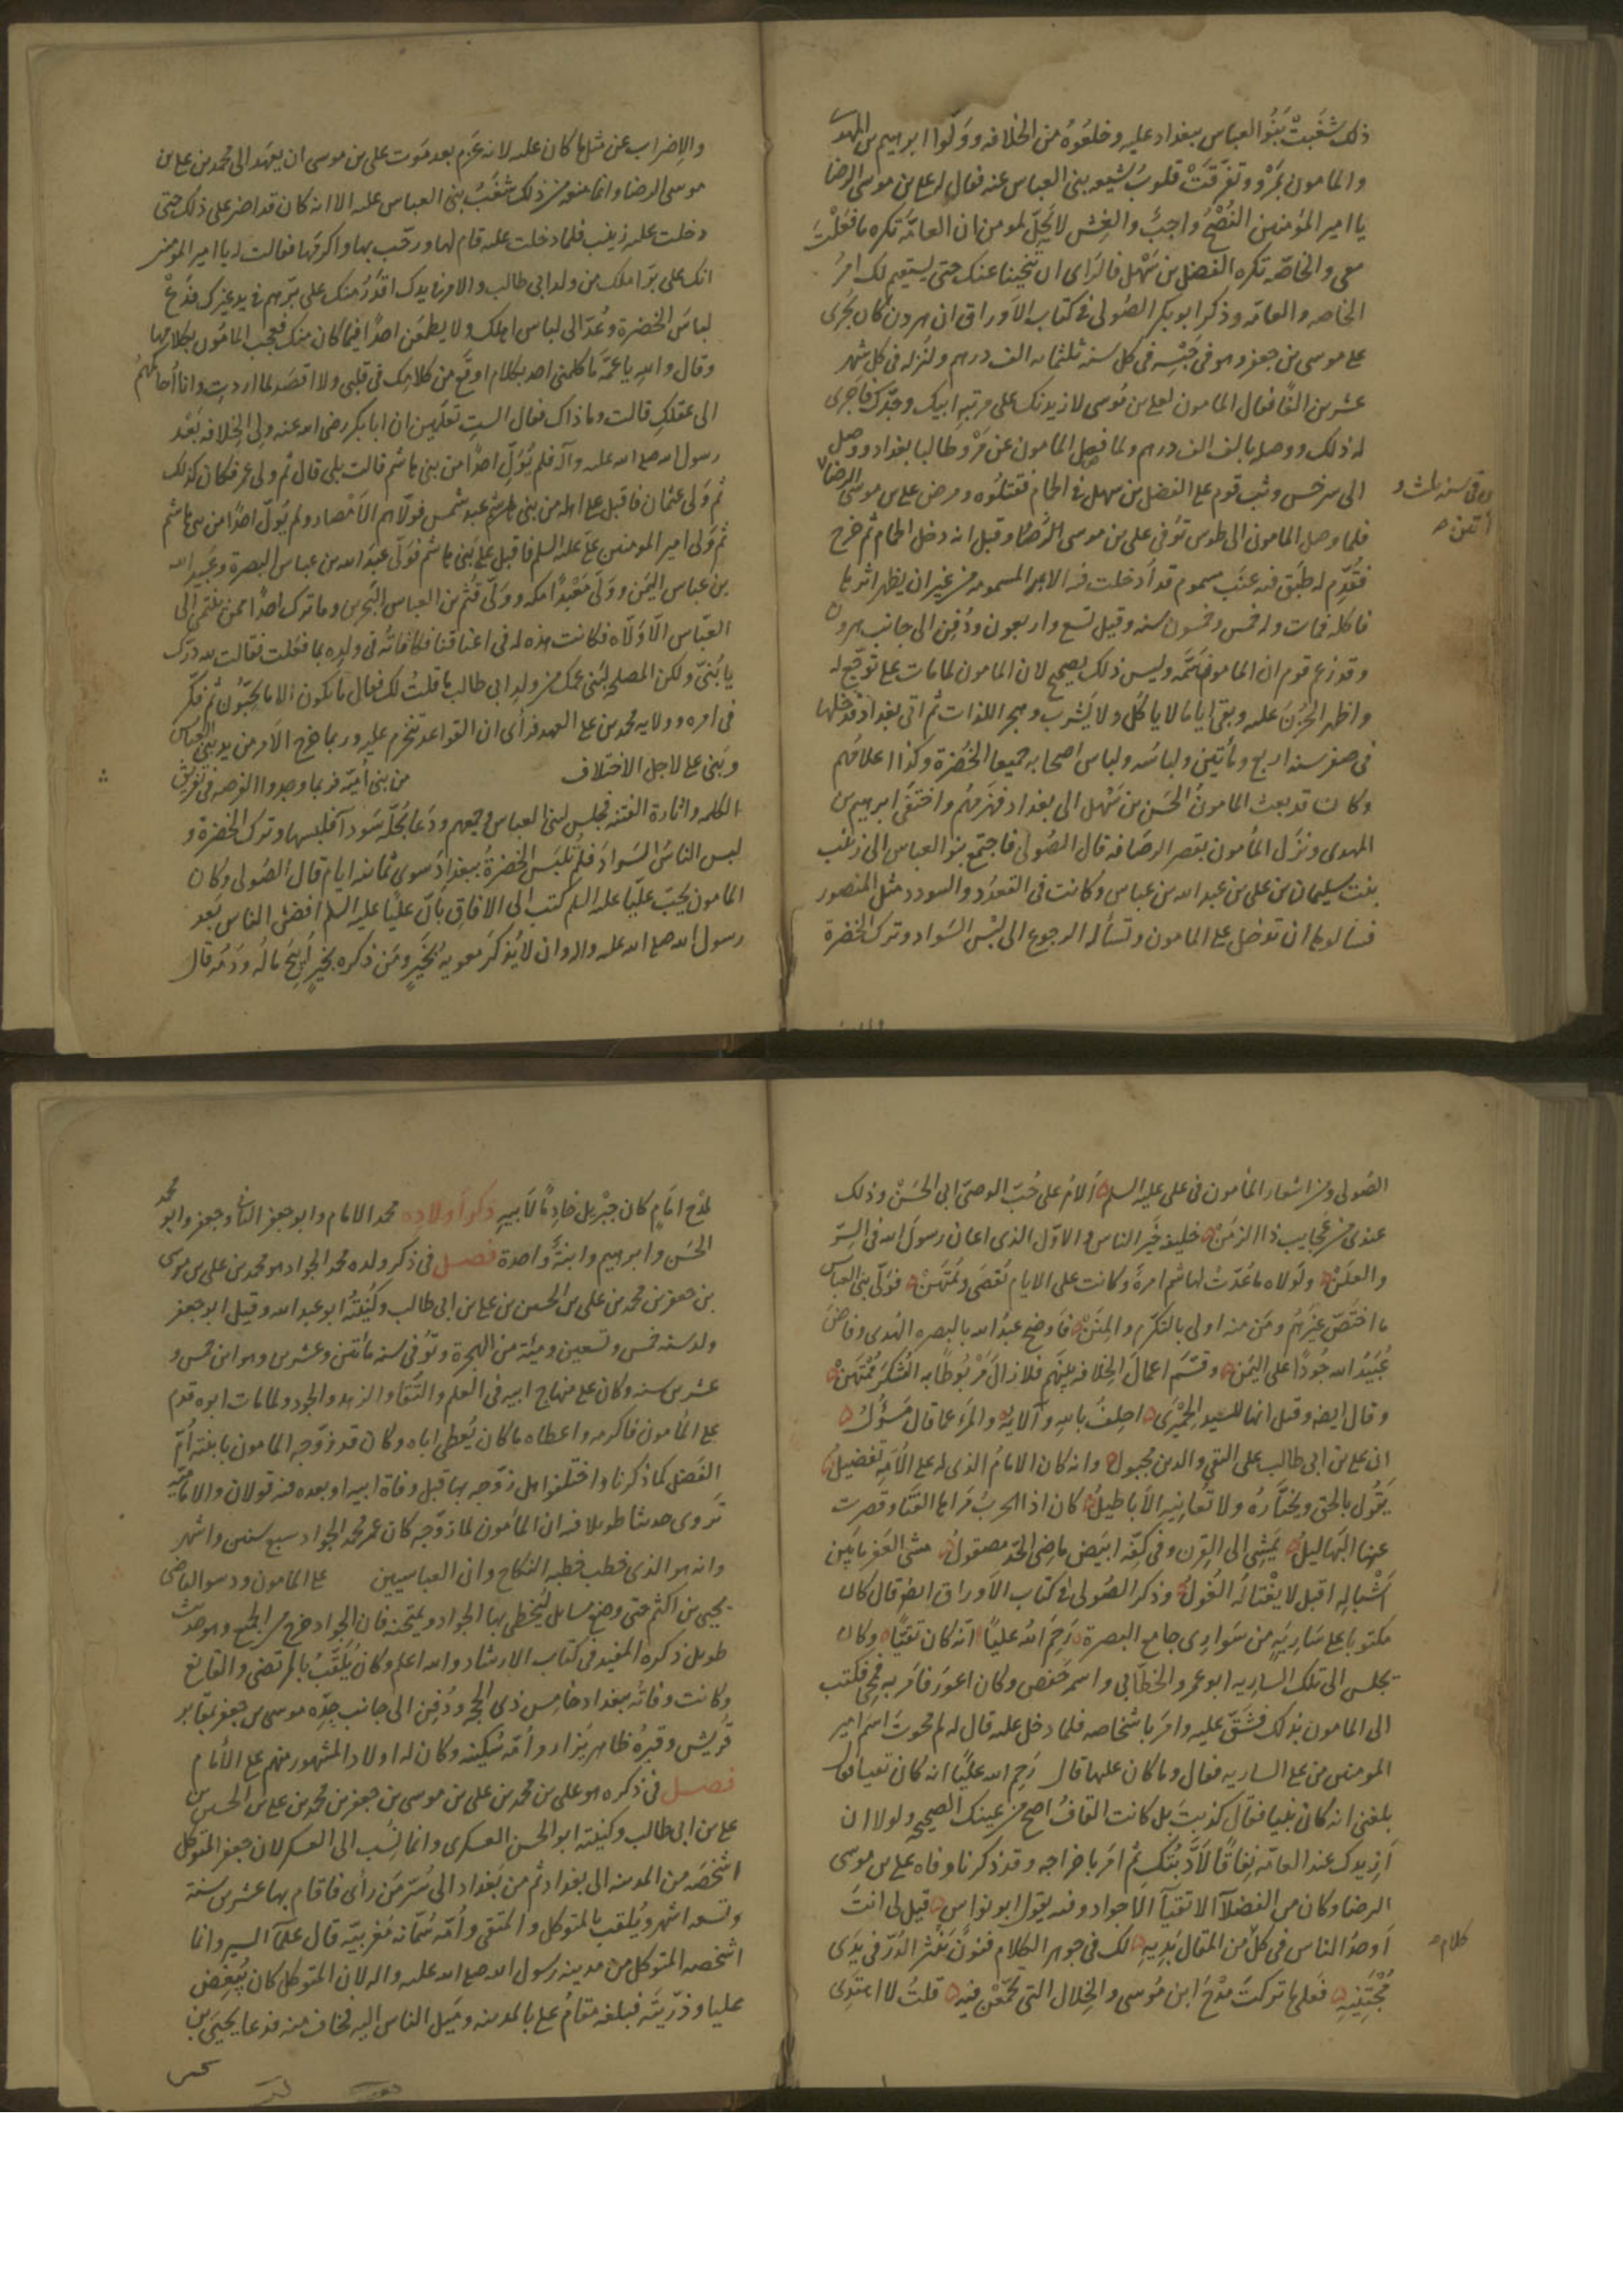 ذلك شَغَبَتْ بَنُو العباس ببغداد عليه وخلعُوهُ من الخلافه ووَلّوا ابرهيم بن المهدى
والمامون بمَرْو وتفرّقَتْ قلوبُ شيعه بنى العباس عنه فقال له على بن موسى الرضا
يا امير المؤمنين النُصْحُ واجبٌ والغِشّ لا يَحِلّ لمومن ان العامّه تكره ما فعَلْتَ
معى والخاصّه تكره الفضل بن سَهْل فالرَاى ان تُنحّينا عنك حتى يستقيم لك امرُ
الخاصه والعامّه وذكر ابو بكر الصُولى فى كتاب الاَوراق ان هرون كان يُجْرى
على موسى بن جعفر وهو فى حَبْسِه فى كل سنه ثلثمائه الف درهم ولنزله فى كل شهر
عشرين الفًا فقال المامون لعلى بن مُوسى لازيدنك على مرتبه ابيك وجدّك فاَجرى
له ذلك ووصله بالف الف درهم ولما فصل المامون عن مَرْو طالبا بغداد ووصل
الى سرخس وثب قوم على الفضل بن سهل فى الحمّام فقتلُوه ومرض على بن موسى الرضا
فى سنه ثلث و
مأتين
فلما وصل المامون الى طوس تُوفّى على بن موسى الرّضا وقيل انه دخل الحمام ثم خرج
فقُدِّم له طبَق فيه عنَب مسموم قد اُدخلت فيه الابر المسمومه من غير ان يظهر اثرها
فاكله فمات وله خمس وخمسون سنه وقيل تسع واربعون ودُفِن الى جانب هرون
وقد زعم قوم ان المامون سَمّه وليس ذلك بصحيح لان المامون لما مات على توجّع له
واظهر الحُزْنَ عليه وبقى اياما لا ياكُل ولا يَشرب وهجر اللذات ثم اتى بغداد فدخلها
فى صفر سنه اربع ومأتين ولباسُه ولباس اصحابه جميعا الخُضرة وكذا اعلامُهم
وكان قد بعث المامونُ الحَسن بن سَهْل الى بغداد فهَزمهُم واختفَى ابرهيم بن
المهدى ونزَل المأمون بقصر الرصافه قال الصُولى فاجتمع بنو العباس الى زينب
بنت سليمان بن على بن عبد الله بن عباس وكانت فى القعدُد والسودد مثل المنصور
فسالوها ان تدخل على المامون وتسأله الرجوع الى لبْس السَواد وترك الخضرة
والاِضراب عن مثل ما كان عليه لانه عَزم بعد مَوت على بن موسى ان يعهَد الى محمد بن على بن
موسى الرضا وانما منعه من ذلك شَغَبُ بنى العباس عليه الا انه كان قد اصَرّ على ذلك حتى
دخلت عليه زينب فلما دخلت عليه قام لها ورحّب بها واكرَمها فقالت له يا امير المؤمنين
انك على بِرّ اهلك من ولد ابى طالب والامر فى يدك اقدَرُ منك على برّهم فى يد غيرك فدَعْ
لباسَ الخضرة وعُدْ الى لباس اهلك ولا يطمَعن احدًا فيما كان منك فعجب المامُون بكلامها
وقال والله يا عمّه ما كلمنى احد بكلام اوقَع من كلامك فى قلبى ولا اقصَد لما اردت وانا اُحاكمُهم
الى عقلكِ قالت وما ذاك فقال الستِ تعلَمين ان ابا بكر رضى الله عنه ولِى الخِلافه بَعْد
رسول الله صلى الله عليه وآله فلم يُوَلِّ احدًا من بنى هاشم قالت بلى قال ثم ولى عمر فكان كذلك
ثم وَلى عثمان فاقبل على اهله من بنى عبد شَمس فولّاهم الاَمْصار ولم يُولّ احدًا من بنى هاشم
ثم وَلى امير المومنين علىّ عليه السلم فاقبل عَلى بَنى هاشم فوَلّى عبدَ الله بن عباس البصرة وعُبيد الله
بن عباس اليَمَن ووَلّى مَعْبدًا مكه ووَلّى قُثَم بن العباس البَحرين وما ترك احدًا ممن ينتمى الى
العبّاس الّا وَلّاه فكانت هذه له فى اعناقنا فكافَاتُه فى ولده بما فعَلت فقالت لله درّك
يا بُنىّ ولكن المصلحه لبنى عمك من ولد ابى طالب ما قلتُ لك فقال ما يكون الا ما تحبّون ثم فكّر
فى امره وولايه محمد بن على العهد فرَأى ان القواعد تنخرم عليه وربما خرج الاَمر من يد بنى العباس
وبَنى على لاجل الاختلاف من بنى اُميّه فربما وجدوا الفرصه فى تفريق
الكلمه واثارة الفتنه فجلس لبنى العباس فجمعهم ودَعا بحُلّه سَوداَ فلبسها وترك الخضرة و
لبس الناسُ السَوادَ فلم تُلبَس الخضرةُ ببغداد سوى ثمانيه ايام قال الصُولى وكان
المامون يحبّ عليًّا عليه السلم كتب الى الافاق بانّ عليًّا عليه السلم افضل الناس بَعد
رسول الله صلى الله عليه واله وان لا يُذكَر معويه بخَيرٍ ومَن ذكره بخيرٍ اُبيحَ مالُه ودَمُه قال
الصُولى ومن اشعار المأمون فى على عليه السلم اُلامُ على حُبّ الوصىّ ابى الحَسَنْ وذلك
عندى من عَجايب ذا الزمَنْ خليفه خَير الناس والاوّل الذى اعان رسولَ الله فى السِرّ
والعلَنْ ولَولاه ما عُدّتْ لهاشم امرةٌ وكانت على الايام تُقصَى وتُمتَهَنْ فوَلّى بنى العباس
ما اختصّ غيرَهُم ومَن منه اولى بالتكرّم والمِنَنْ فاَوضح عبدُ الله بالبصره الهُدى وفاضَ
عُبَيْدُ الله جُودًا على اليَمَن وقسَّمَ اعمالَ الخِلافه بينَهم فلا زالَ مَرْبُوطًا به الشُكرَ مُرْتهَنْ
وقال ايضا وقيل انها للسيد الحِمْيَرى احلِفُ بالله وآلائه والمَرء عما قال مَسؤُلُ
ان على بن ابى طالب على التقى والدين مجبولُ وانه كان الامامُ الذى له على الاُمّه تفضيلُ
يَقُول بالحق ويختَارُه ولا تُعانِيه الاَباطيلُ كان اذا الحربُ مَراها القنَا وقصرت
عنها البَهاليلُ يَمشِى الى القِرن وفى كفّه ابيَض ماضِى الحَدّ مصقولُ مشىَ العَفرنا بَين
اَشباله اقبل لا يغْتالُه الغُولُ وذكر الصُولى فى كتاب الاَوراق ايضا قال كان
مكتوبا على سَارِيَةٍ من سَوارى جامع البصرة رَحِمَ الله عليًّا انّه كان تقيًّا وكان
يجلس الى تلك الساريه ابو عمرو الخطّابى واسمه حَفص وكان اعوَر فامَر به فمُحِى فكتب
الى المامون بذلك فشَقّ عليه وامَر باشخاصه فلما دخل عليه قال له لم محوتَ اسمَ امير
المومنين من على الساريه فقال وما كان عليها قال رَحِم الله عليًّا انه كان تقيا فقال
بلغنى انه كان نبيا فقال كذبتَ بل كانت القافُ اصح من عَينك الصَحيحه ولولا ان
اَزيدك عند العامّه نِفاقًا لاَدَّبتُك ثم امَر باخراجه وقد ذكرنا وفاه على بن موسى
الرضا وكان من الفضلآ الاتقيآ الاَجواد وفيه يقول ابو نواس قيل لى انتَ
اَوحدُ الناس فى كلّ من المقال بَديهِ لك فى جوهر الكلام فنونٌ يَنثُر الدُرّ فى يدَى
كلام
مُجْتَنيهِ فعَلى ما تركتَ مَدْحَ ابن مُوسى والخِلال التى تجمّعْنَ فيه قلتُ لا اهتَدِى
لمدْح امَامٍ كان جبْريل خادِمًا لاَبيهِ ذكر اَولادِه محمد الامام وابو جعفر الثانى وجعفر وابو محمد
الحسَن وابرهيم وابنةٌ واحدة فصـل فى ذكر ولده محمد الجواد هو محمد بن على بن موسى
بن جعفر بن محمد بن على بن الحسين بن على بن ابى طالب وكُنيتُه ابو عبد الله وقيل ابو جعفر
ولد سنه خمس وتسعين ومئة من الهجرة وتوُفّى سنه مائتين وعشرين وهو ابن خمس و
عشرين سنه وكان على منهاج ابيه فى العلم والتُقا والزهد والجود ولما مات ابوه قدم
على المأمون فاكرمه واعطاه ما كان يُعطى اباه وكان قد زوّجه المامون بابنته اُمّ
الفَضل كما ذكرنا واختلفوا هل زوّجه بها قبل وفاة ابيه او بعده فيه قولان والاماميّه
تَروى حديثا طويلا فيه ان المأمون لما زوّجه كان عمر محمد الجواد سبع سنين واشهر
وانه هو الذى خطب خطبه النكاح وان العباسيين على المامون ودسوا القاضى
يحيى بن اكثم حتى وضع مسايل ليُخطى بها الجواد ويمتحنه فان الجواد خرج من الجميع وهو حديث
طويل ذكره المفيد فى كتاب الارشاد والله اعلم وكان يُلقّبُ بالمرتضى والقانع
وكانت وفاتُه ببغداد خامس ذى الحجه ودُفِن الى جانب جدّه موسى بن جعفر بمقابر
قُريش وقبرُه ظاهر يُزار واُمّه سُكينه وكان له اولاد المشهور منهم على الأمام
فصـل فى ذكره هو على بن محمد بن على بن موسى بن جعفر بن محمد بن على بن الحسين بن
على بن ابى طالب وكنيته ابو الحسن العسكرى وانما نُسِب الى العسكر لان جعفر المتوكل
اشخصَه من المدينه الى بغداد ثم من بَغداد الى سُرّ مَن رأى فاقام بها عشرين سنة
وتسعه اشهر ويُلقب بالمتوكل والمتقى واُمّه سُمّانه مَغربيّه قال علمآ السير وانما
اشخصه المتوكل من مدينه رسول الله صلى الله عليه واله لان المتوكل كان يُبغِض
عليا وذرّيتَه فبلغه مَقامُ على بالمدينه ومَيل الناس اليه فخاف منه فدعا يحيَى بن